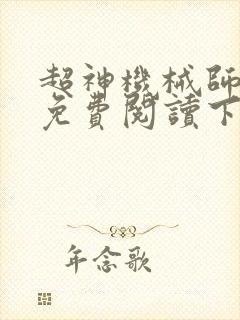 超神機械師
免費閱讀下
年念歌